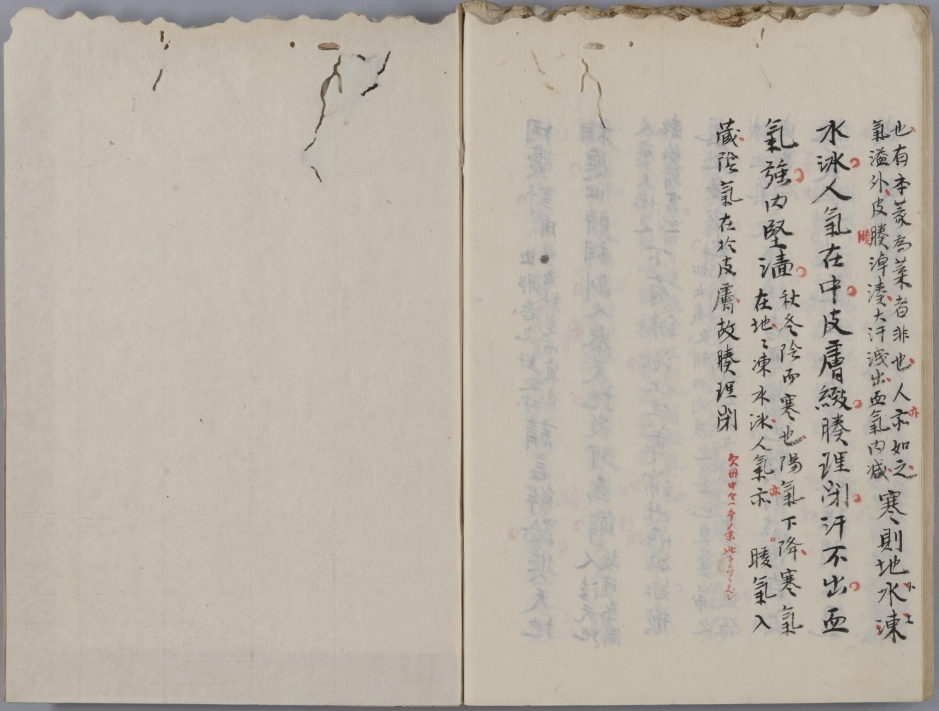 也有本蒸為菜者非也人亦如之
氣溢外皮腠淖湊大汗洩出血氣内減
寒則地水凍
水冰人氣在中皮膚緻腠理閉汗不出血
氣強内堅濇
秋冬陰而寒也陽氣下降寒氣
在地々凍水冰人氣亦 陵氣入
藏陰氣在於皮膚故腠理閉